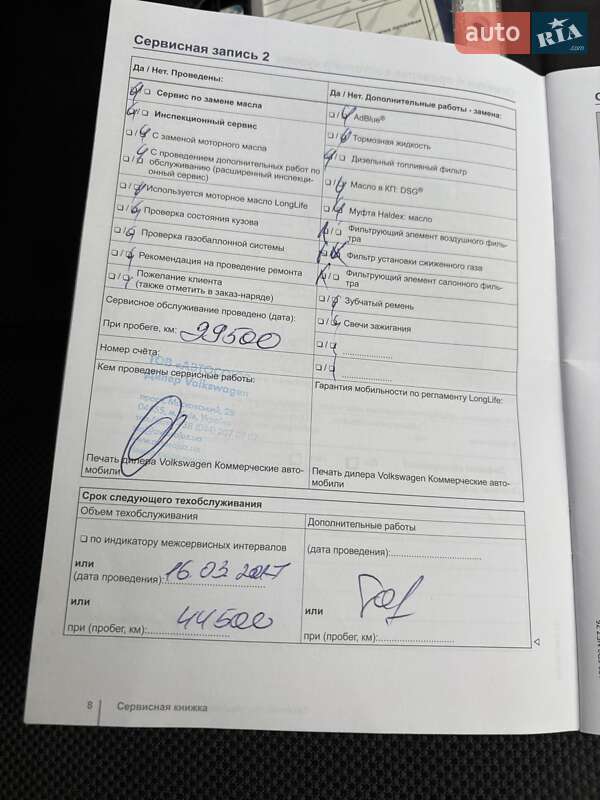 auto RIA .com
Сервисная запись 2
Да / Нет. Проведены:
❏ / ❏ Сервис по замене масла
❏ / ❏ Инспекционный сервис
❏ / ❏ С заменой моторного масла
❏ / ❏ С проведением дополнительных работ по
обслуживанию (расширенный инспекци-
онный сервис)
❏ / ❏ Используется моторное масло LongLife
❏ / ❏ Проверка состояния кузова
❏ / ❏ Проверка газобаллонной системы
❏ / ❏ Рекомендация на проведение ремонта
❏ / ❏ Пожелание клиента
(также отметить в заказ-наряде)
Сервисное обслуживание проведено (дата):
При пробеге, км: 29500
Номер счёта:
Кем проведены сервисные работы:
Дилер Volkswagen
Печать дилера Volkswagen Коммерческие авто-
мобили
Да / Нет. Дополнительные работы - замена:
❏ / ❏ AdBlue®
❏ / ❏ Тормозная жидкость
❏ / ❏ Дизельный топливный фильтр
❏ / ❏ Масло в КП: DSG®
❏ / ❏ Муфта Haldex: масло
❏ / ❏ Фильтрующий элемент воздушного филь-
тра
❏ / ❏ Фильтр установки сжиженного газа
❏ / ❏ Фильтрующий элемент салонного филь-
тра
❏ / ❏ Зубчатый ремень
❏ / ❏ Свечи зажигания
❏ / ❏ ....................
❏ / ❏ ....................
Гарантия мобильности по регламенту LongLife:
Печать дилера Volkswagen Коммерческие авто-
мобили
Срок следующего техобслуживания
Объем техобслуживания
❏ по индикатору межсервисных интервалов
или
(дата проведения): 16.03.2017
или
при (пробег, км): 44500
Дополнительные работы
(дата проведения):
или
при (пробег, км):
8 Сервисная книжка